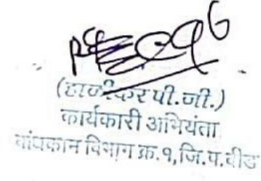 (हाळीकर पी.जी.)
कार्यकारी अभियंता
बांधकाम विभाग क्र.१, जि.प.बीड